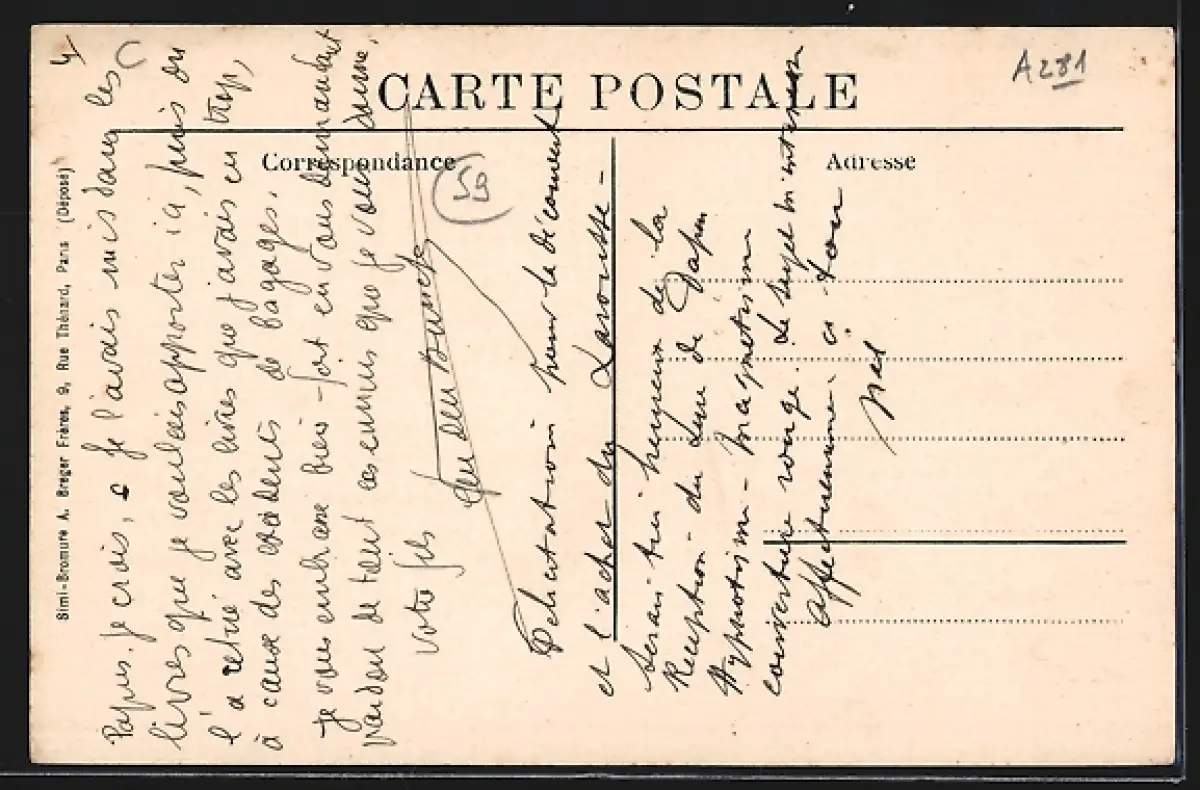 CARTE POSTALE
Correspondance
Adresse
A281
50
Simi-Bromure A. Breger Frères, 9, Rue Thénard, Paris (Déposé)
4
Papus. Je crois, Je l'avais mis dans les
livres que je voulais apporter ici, puis on
l'a retiré avec les livres que j'avais en trop,
à cause des excédents de bagages.
Je vous embrasse bien fort en vous demandant
pardon de tout ces ennuis que je vous donne.
Votre fils
Félicitations pour la découverte
et l'achat du Larousse -
Serais très heureux de la
Réception du Livre de Papus
Hypnotisme - Magnétisme
couverture rouge. Le sujet m'intéresse
affectueusement à tous